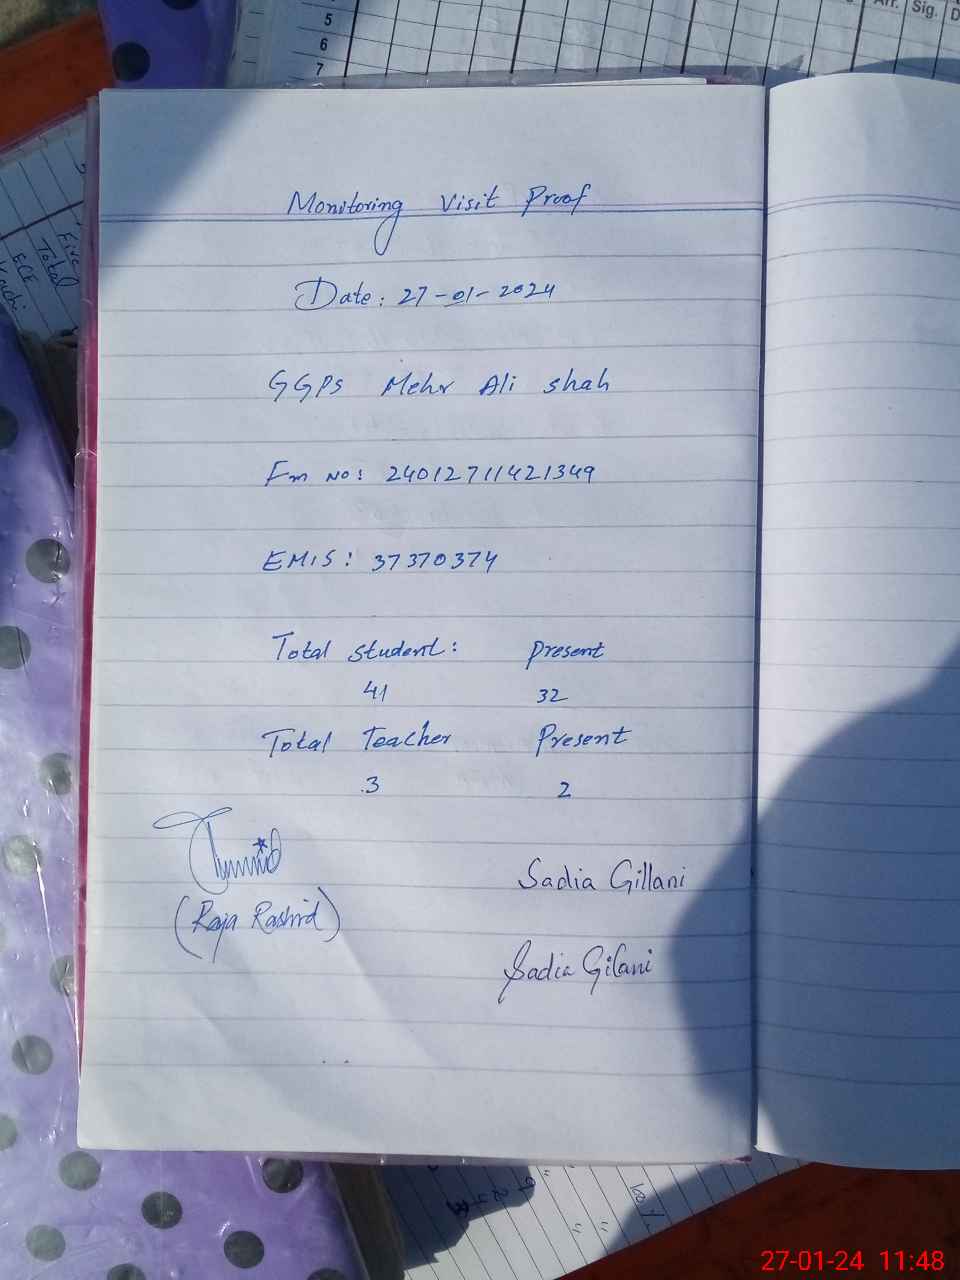 5
6
7
Arr. Sig.
Five
Total
ECE
Monitoring Visit Proof
Date: 27-01-2024
GGPS Mehr Ali shah
Fm No: 24012711421349
EMIS: 37370374
Total student: Present
41 32
Total Teacher Present
3 2
(Raja Rashid)
Sadia Gillani
Sadia Gilani
27-01-24 11:48